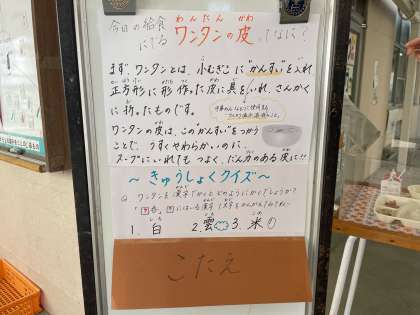 今日の給食
にでる ワンタンの皮 ってなに?
わんたん かわ
まず、ワンタンとは、小むぎこに"かんすい"を入れ
正方形に形作った皮に具をいれ、さんかく
に折ったものです。
ワンタンの皮は、この"かんすい"をつかう
ことで、うすくやわらかいのに
スープにいれても つよく、だん力のある皮に!!
~きゅうしょくクイズ~
Q ワンタンを漢字でかくとどのようにかくでしょうか?
1. 白 2. 雲 3. 米
しろ くも こめ
こたえ